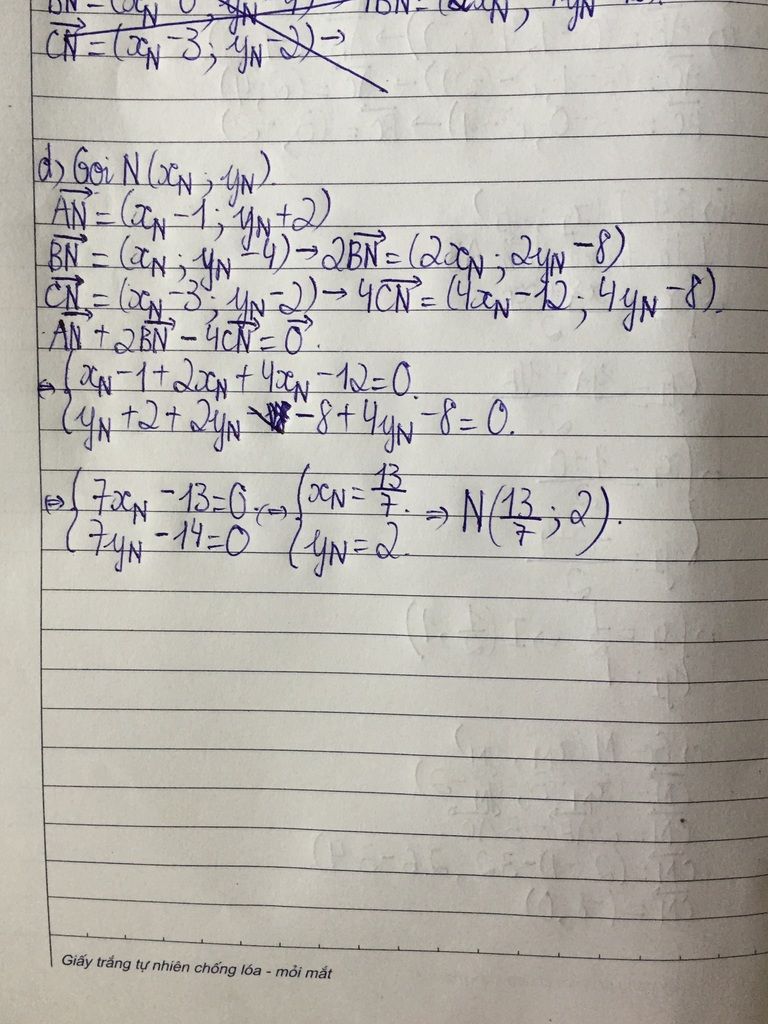 BN = (xN 0 ; yN - 4) 
CN = (xN - 3 ; yN - 2) →
d) Gọi N(xN ; yN).
AN = (xN - 1 ; yN + 2)
BN = (xN ; yN - 4) → 2BN = (2xN ; 2yN - 8)
CN = (xN - 3 ; yN - 2) → 4CN = (4xN - 12 ; 4yN - 8).
AN + 2BN - 4CN = 0.
⇔ { xN - 1 + 2xN + 4xN - 12 = 0.
{ yN + 2 + 2yN - 8 + 4yN - 8 = 0.
⇔ { 7xN - 13 = 0. ⇔ { xN = 13/7. ⇒ N(13/7 ; 2).
{ 7yN - 14 = 0 { yN = 2.
Giấy trắng tự nhiên chống lóa - mỏi mắt